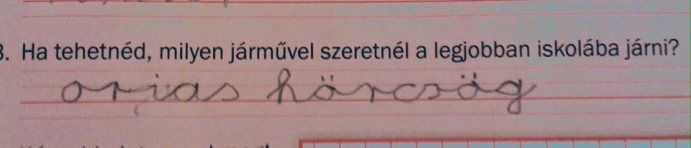 3. Ha tehetnéd, milyen járművel szeretnél a legjobban iskolába járni?
orias hörcsög